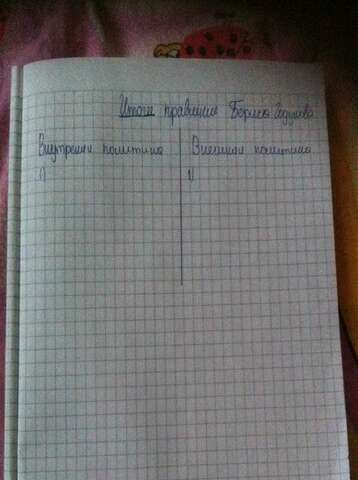 Итоги правления Бориса Годунова
Внутрення политика Внешняя политика
1) 1)